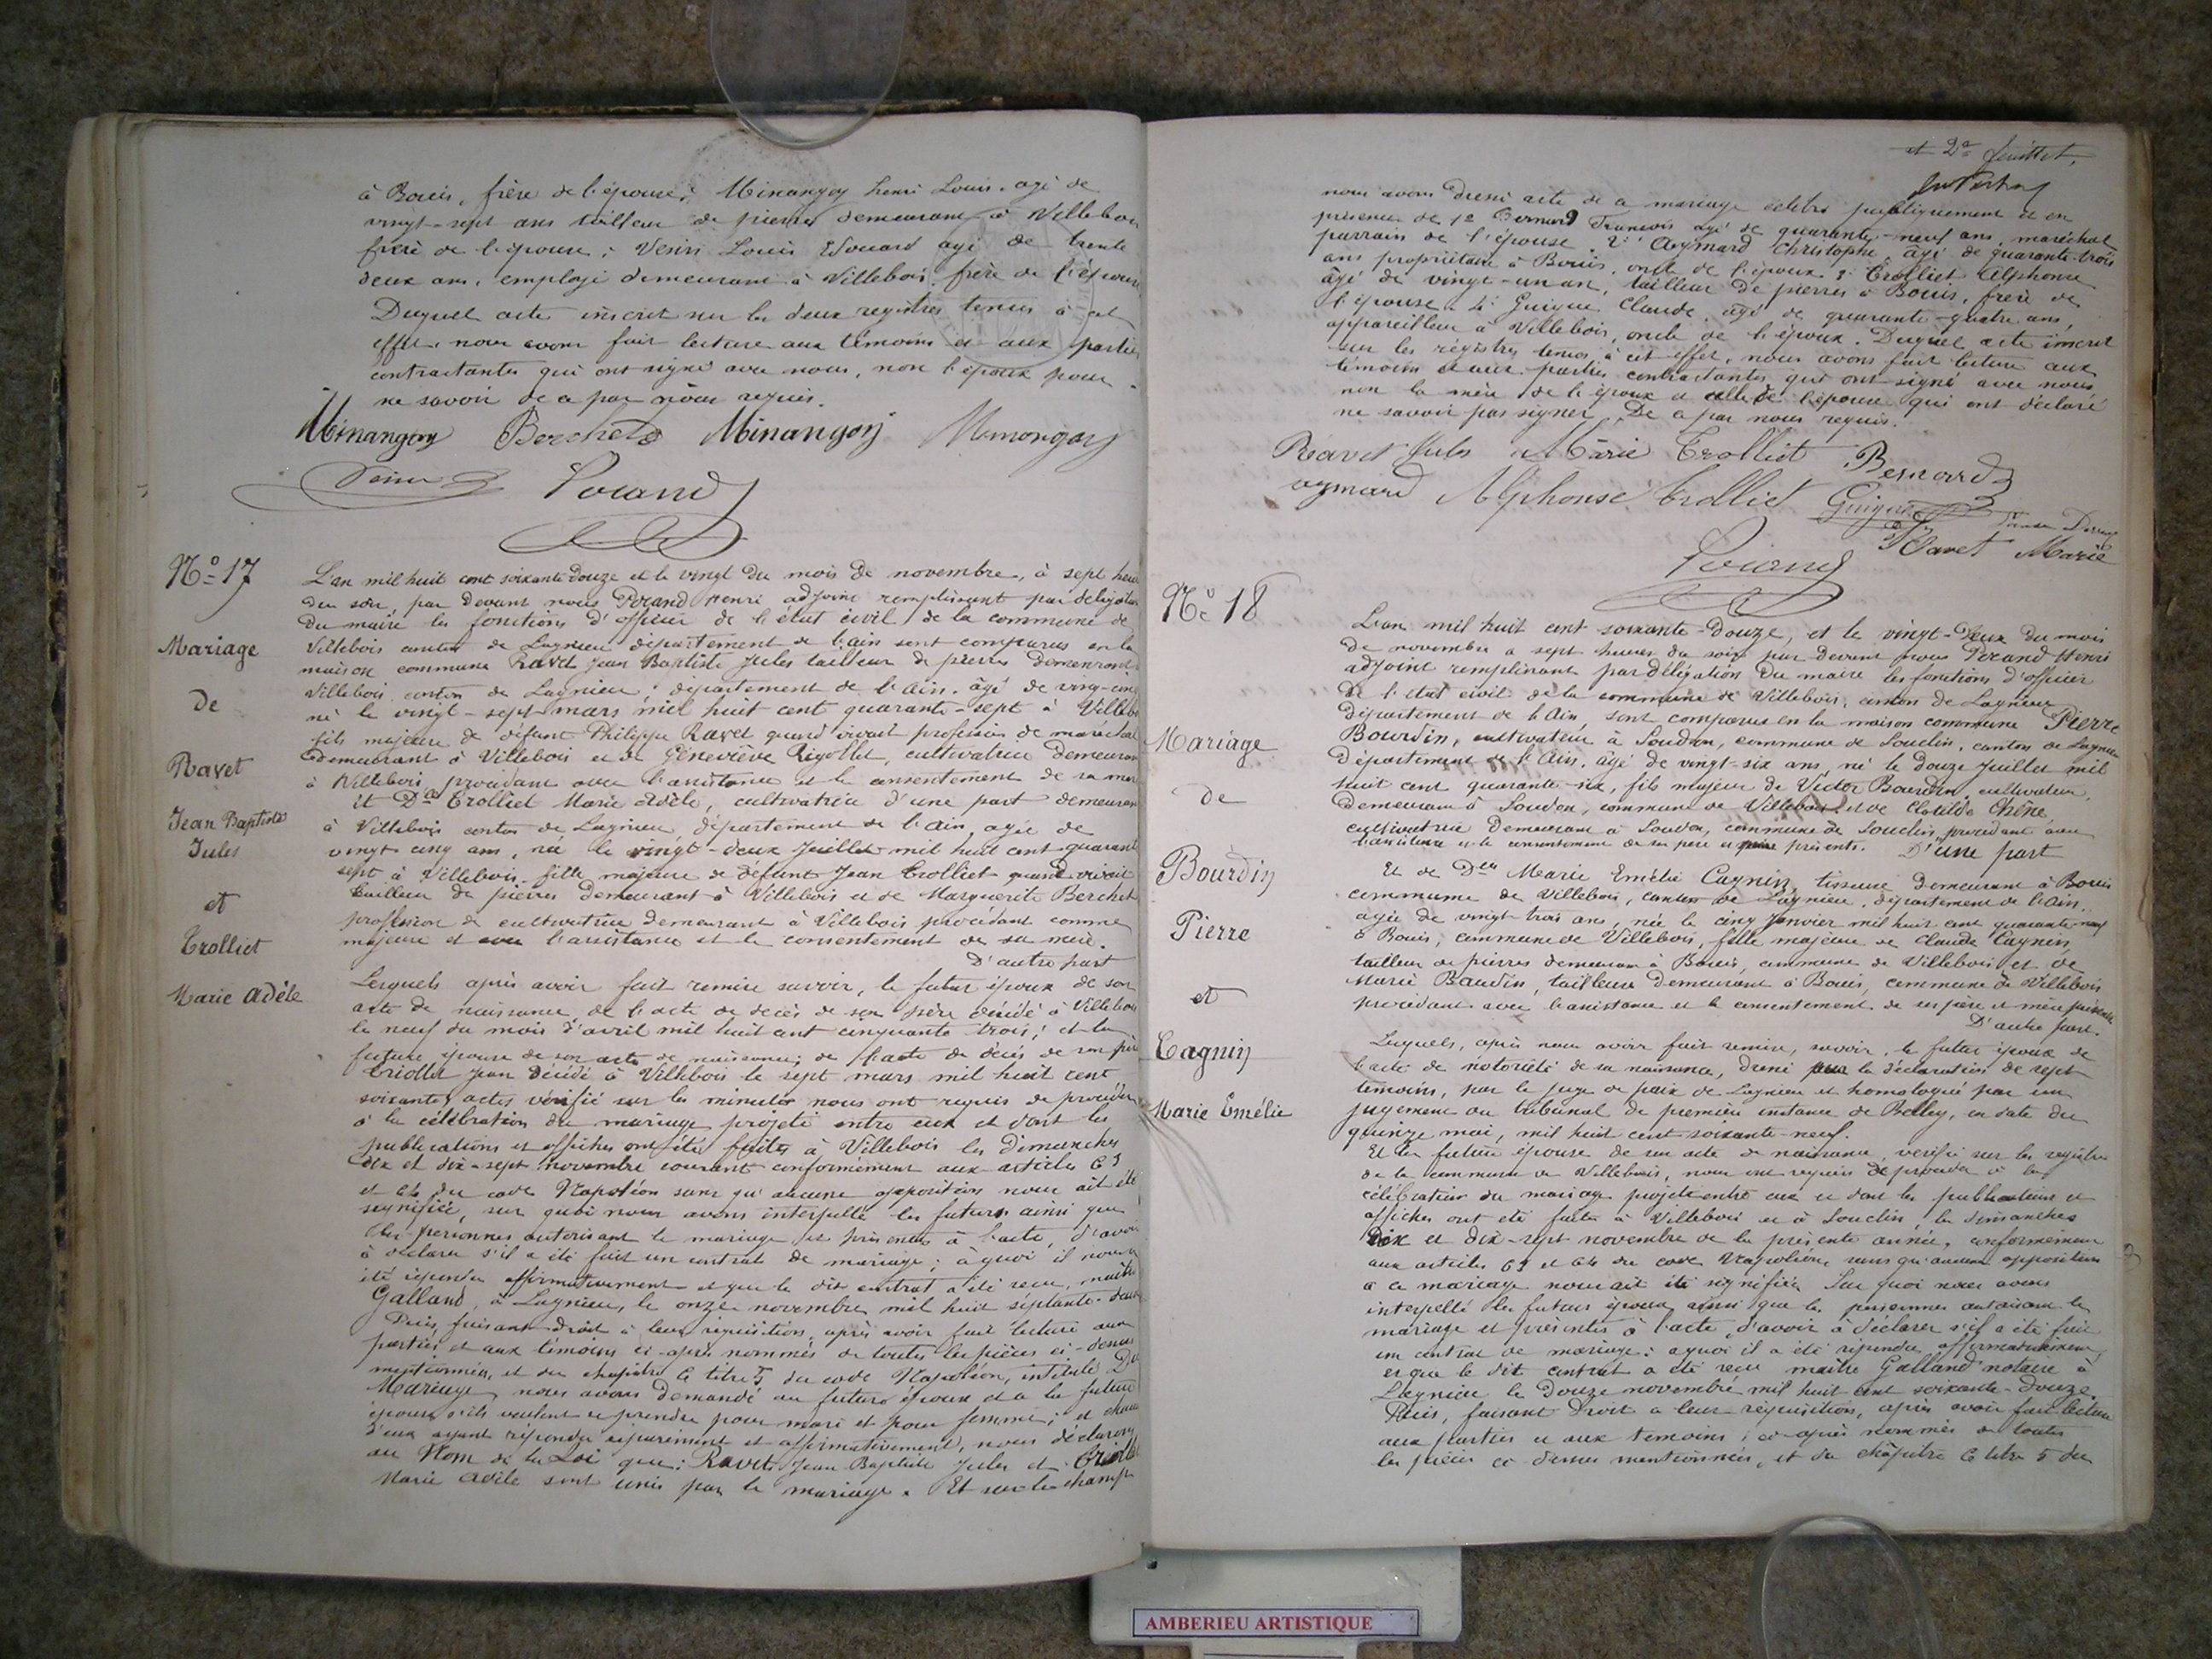 à Bouis, frère de l'épouse; Minangoy henri Louis, agé de
vingt-sept ans tailleur de pierres demeurant à Villebois
frère de l'épouse; Venin Louis Edouard agé de trente
deux ans, employé demeurant à Villebois, frère de l'épouse
Duquel acte inscrit sur les deux registres tenus à cet
effet, nous avons fait lecture aux témoins et aux parties
contractantes qui ont signé avec nous, non l'époux pour
ne savoir de ce par nous requis.
Minangoy Berchet Minangoy Minangoy
Perand
N° 17
Mariage
de
Ravet
Jean Baptiste
Jules
et
Trolliet
Marie Adèle
L'an mil huit cent soixante douze et le vingt du mois de novembre, à sept heures
du soir, par devant nous Perand Henri adjoint remplissant par délégation
du maire les fonctions d'officier de l'état civil de la commune de
Villebois canton de Lagnieu département de l'ain sont comparus en la
maison commune Ravet Jean Baptiste Jules tailleur de pierres demeurant
Villebois canton de Lagnieu, département de l'Ain, âgé de vingt-cinq
né le vingt-sept mars mil huit cent quarante-sept à Villebois
fils majeur de défunt Philippe Ravet quand vivait profession de maréchal
demeurant à Villebois et de Geneviève Rigollet, cultivatrice demeurant
à Villebois procédant avec l'assistance et le consentement de sa mère
Et Dlle Trolliet Marie Adèle, cultivatrice d'une part demeurant
à Villebois canton de Lagnieu, département de l'Ain, agée de
vingt cinq ans, née le vingt-deux Juillet mil huit cent quarante
sept à Villebois, fille majeure de défunt Jean Trolliet quand vivait
tailleur de pierres demeurant à Villebois et de Marguerite Berchet
profession de cultivatrice demeurant à Villebois procédant comme
majeure et avec l'assistance et le consentement de sa mère.
D'autre part
Lesquels après avoir fait remise savoir, le futur époux de son
acte de naissance, de l'acte de décès de son père décédé à Villebois
le neuf du mois d'avril mil huit cent cinquante trois; et la
future épouse de son acte de naissance; de l'acte de décès de son père
Triollet Jean décédé à Villebois le sept mars mil huit cent
soixante, actes vérifié sur les minutes nous ont requis de procéder
à la célébration du mariage projeté entre eux et dont les
publications et affiches ont été faites à Villebois les Dimanches
dix et dix-sept novembre courant conformément aux articles 63
et 64 du code Napoléon sans qu'aucune opposition nous ait été
signifiée, sur quoi nous avons interpellé les futurs ainsi que
les personnes autorisant le mariage et présentes à l'acte, d'avoir
à déclarer s'il a été fait un contrat de mariage; à quoi il nous a
été répondu affirmativement et que le dit contrat a été recu, maître
Galland, à Lagnieu, le onze novembre mil huit séptante-deux
Puis, faisant droit à leur réquisition, après avoir fait lecture aux
parties et aux témoins ci-après nommés de toutes les pièces ci-dessus
mentionnées, et du chapitre 6 titre 5 du code Napoléon, intitulé Du
Mariage, nous avons demandé au futur époux et à la future
épouse s'ils veulent se prendre pour mari et pour femme; et chacun
d'eux ayant répondu séparément et affirmativement, nous déclarons
au Nom de la Loi que: Ravet, Jean Baptiste Jules et Triollet
Marie Adèle sont unis par le mariage. Et sur le champ
et 2e feuillet,
nous avons dressé acte de ce mariage célébré publiquement et en
présence de 1° Bernard François agé de quarante-neuf ans, maréchal
parrain de l'épouse. 2° Aymard Christophe, âgé de quarante-trois
ans propriétaire à Bouis, oncle de l'époux 3° Trolliet Alphonse
âgé de vingt-un an, tailleur de pierres à Bouis, frère de
l'épouse 4° Guigue Claude, âgé de quarante-quatre ans,
appareilleur à Villebois, oncle de l'époux. Duquel acte inscrit
sur les régistres tenus à cet effet, nous avons fait lecture aux
témoins et aux parties contractantes qui ont signé avec nous
non la mère de l'époux et celle de l'épouse qui ont déclaré
ne savoir pas signer, De ce par nous requis.
Ravet Jules Marie Trolliet Bernard
aymard Alphonse Trolliet Guigue
Ravet Marie
Perand
N° 18
Mariage
de
Bourdin
Pierre
et
Cagnin
Marie Emélie
L'an mil huit cent soixante-douze, et le vingt-deux du mois
de novembre à sept heures du soir par devant nous Perand Henri
adjoint remplissant par délégation du maire les fonctions d'officier
de l'état civil de la commune de Villebois, canton de Lagnieu
Département de l'Ain, sont comparus en la maison commune Pierre
Bourdin, cultivateur à Soudon, commune de Souclin, canton de Lagnieu
Département de l'Ain, âgé de vingt-six ans, né le douze Juillet mil
huit cent quarante-six, fils majeur de Victor Bourdin, cultivateur,
demeurant à Soudon, commune de Villebois et de Clotilde Chêne,
cultivatrice demeurant à Soudon, commune de Souclin, procédant avec
l'assistance et le consentement de ses père et mère présents. D'une part
Et de Dlle Marie Emélie Cagnin, tisseuse demeurant à Bouis
commune de Villebois, canton de Lagnieu, département de l'Ain,
âgée de vingt-trois ans, née le cinq Janvier mil huit cent quarante-neuf
à Bouis, commune de Villebois, fille majeure de Claude Cagnin,
tailleur de pierres demeurant à Bouis, commune de Villebois et de
Marie Baudin, tailleuse demeurant à Bouis, commune de Villebois
procédant avec l'assistance et le consentement de ses père et mère présents
D'autre part.
Lesquels, après nous avoir fait remise, savoir, le futur époux de
l'acte de notoriété de sa naissance, dressé sur la déclaration de sept
témoins, par le juge de paix de Lagnieu et homologué par un
jugement du tribunal de première instance de Belley, en date du
quinze mai, mil huit cent soixante-neuf.
Et la future épouse de son acte de naissance, vérifié sur les registres
de la commune de Villebois, nous ont requis de procéder à la
célébration du mariage projeté entre eux et dont les publications et
affiches ont été faites à Villebois et à Souclin, les dimanches
dix et dix-sept novembre de la présente année, conformément
aux articles 63 et 64 du code Napoléon, sans qu'aucune opposition
à ce mariage nous ait été signifiée. Sur quoi nous avons
interpellé les futurs époux, ainsi que les personnes autorisant le
mariage et présentes à l'acte, d'avoir à déclarer s'il a été fait
un contrat de mariage: à quoi il a été répondu affirmativement
et que le dit contrat a été recu maître Galland notaire à
Lagnieu le douze novembre mil huit cent soixante-douze.
Puis, faisant droit à leur réquisition, après avoir fait lecture
aux parties et aux temoins, ci-après nommés de toutes
les pièces ci-dessus mentionnées, et du chapitre 6 titre 5 du
AMBERIEU ARTISTIQUE